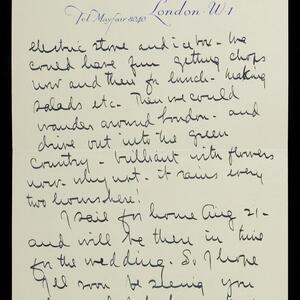 London - W1
Tel. Mayfair 8040
electric stove and ice box - We
could have fun getting chops
now and then for lunch - making
salads etc - Then we could
wander around London - and
drive out into the green
country - brilliant with flowers
now - why not - it rains every
two hours here!
I sail for home Aug 21 -
and will be there in time
for the wedding. So, I hope
I'll soon be seeing you